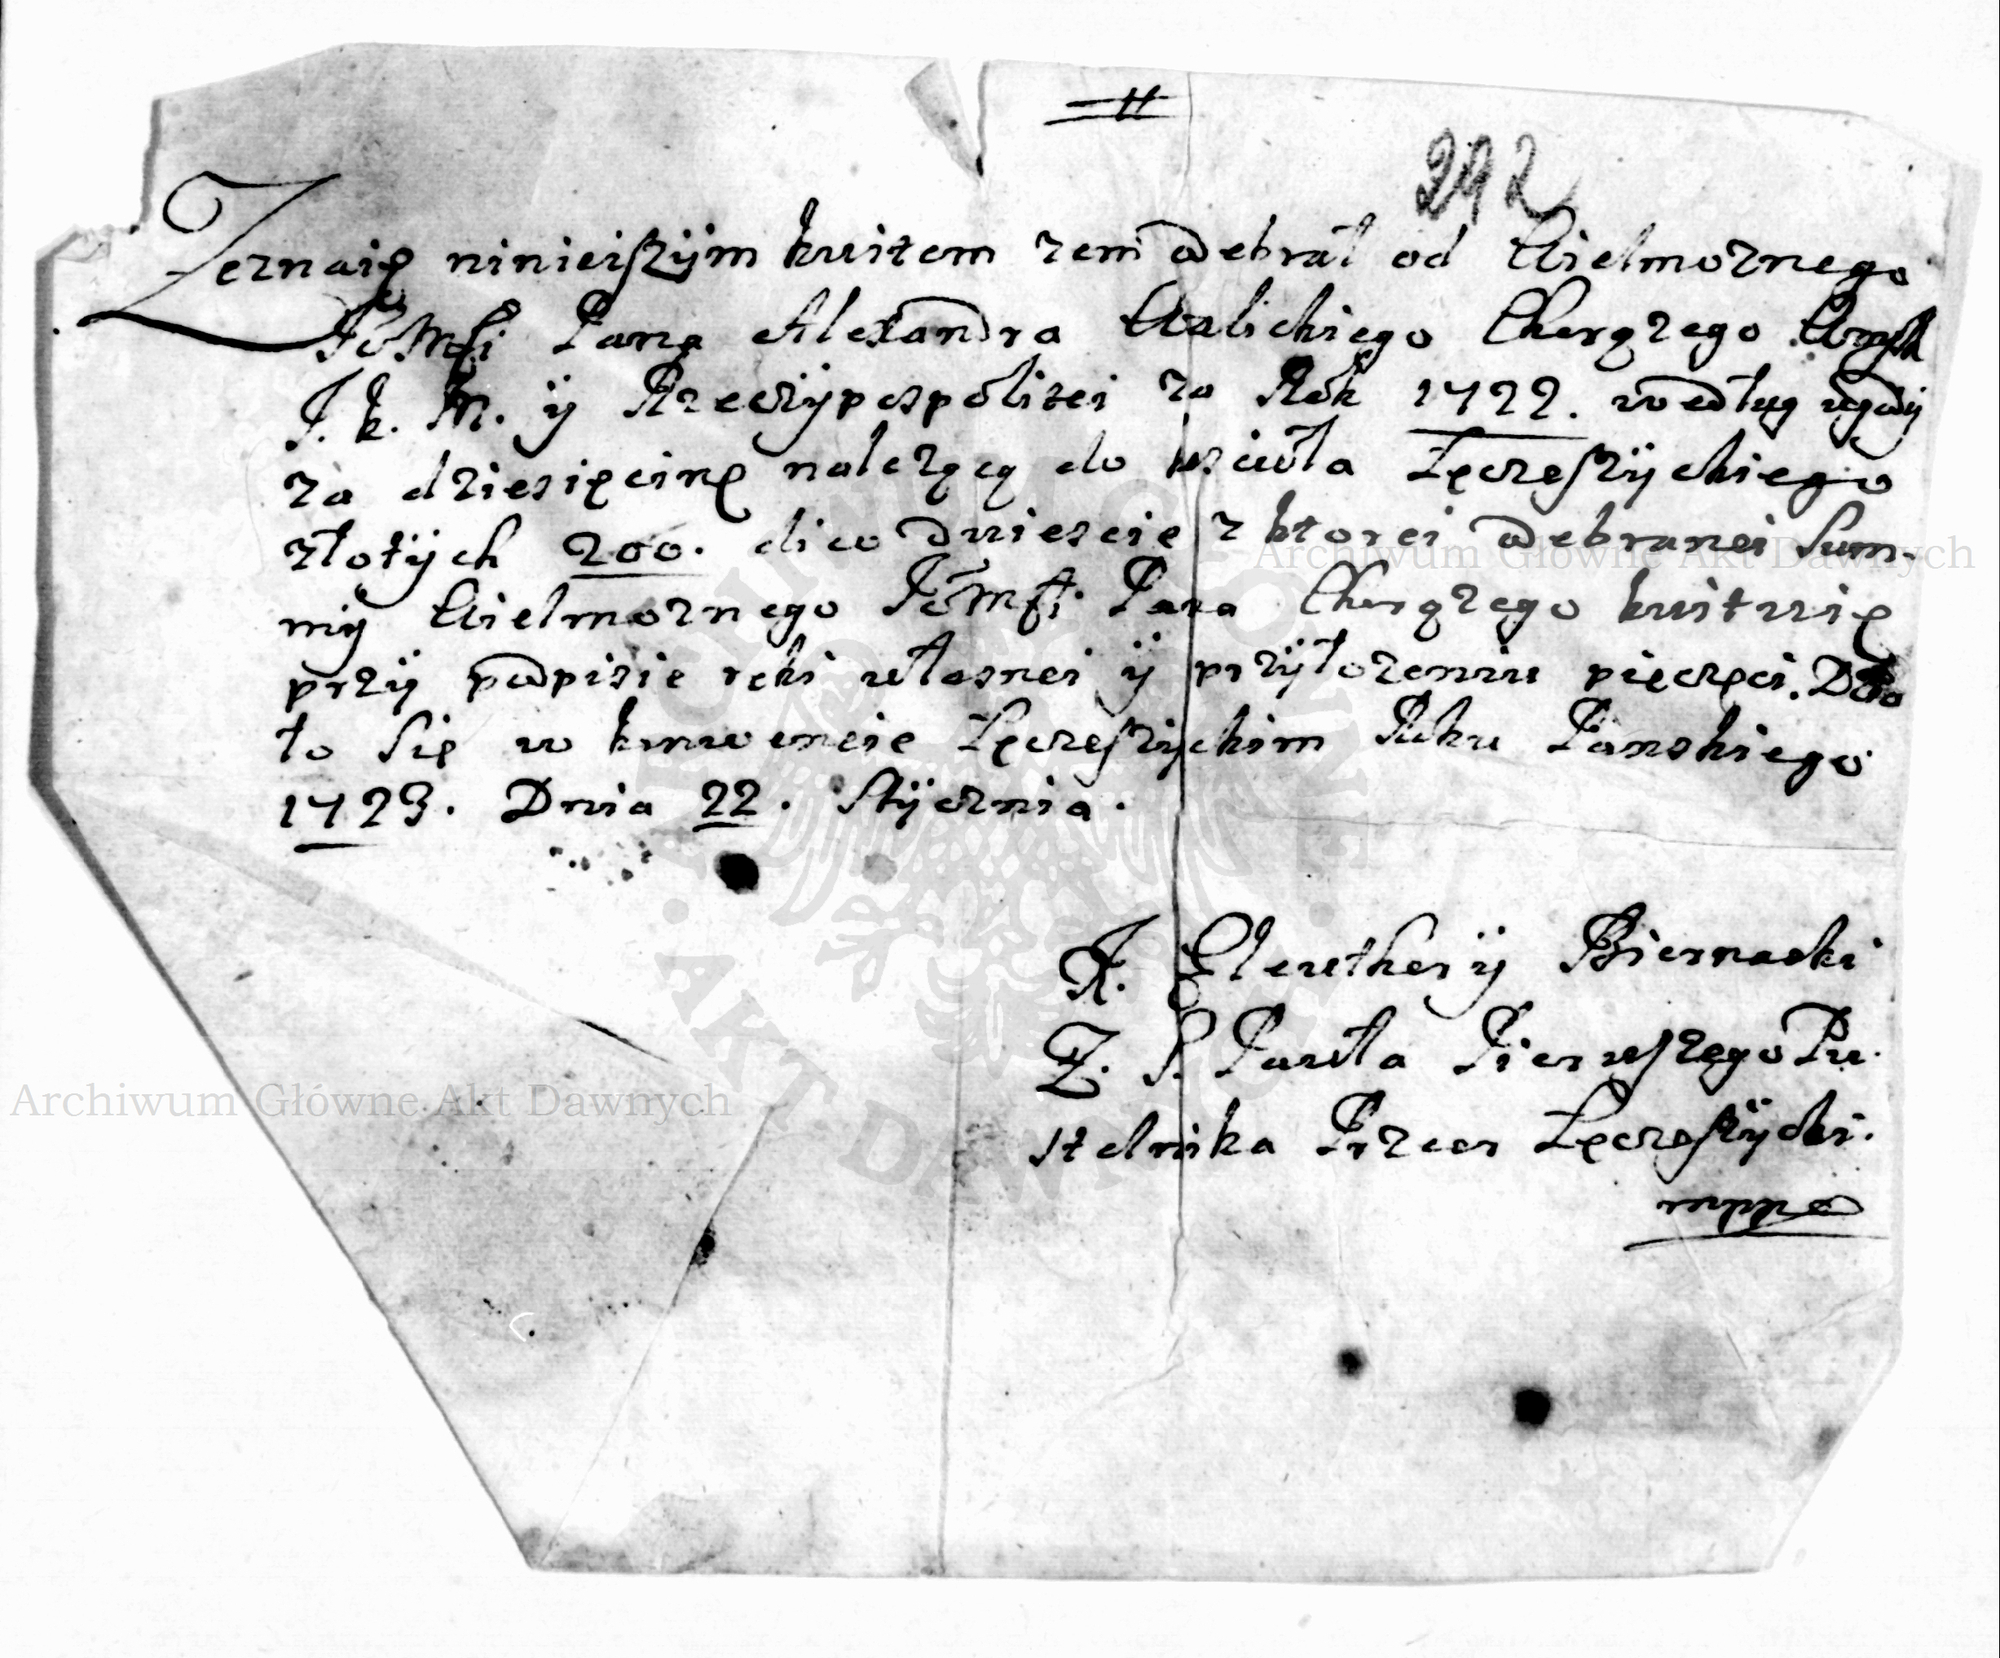 292
Zeznaię ninieiszÿm kwitem żem odebrał od Wielmożnego
Jo Mści Pana Alexandra Walickiego Chorążego
J. K. M. ÿ Rzeczÿpospolitei za Rok 1722. według ugody
za dziesięcinę należącą do kościoła Łęczeszÿckiego
złotÿch 200. dico dwieście z ktorei odebranei Sum-
mÿ Wielmożnego Jo Mści Pana Chorążego kwituię
przÿ podpisie ręki własnei ÿ przÿłożeniu pięczęci. Dzia
ło się w konwencie Łęczeszÿckim Roku Panskiego
1723. Dnia 22. Stÿcznia.
X. Eleutherÿ Biernacki
Z. S. Pawła Pierwszego Pu.
stelnika Przeor Łęczeszÿcki.
mppa
Archiwum Główne Akt Dawnych
Archiwum Główne Akt Dawnych